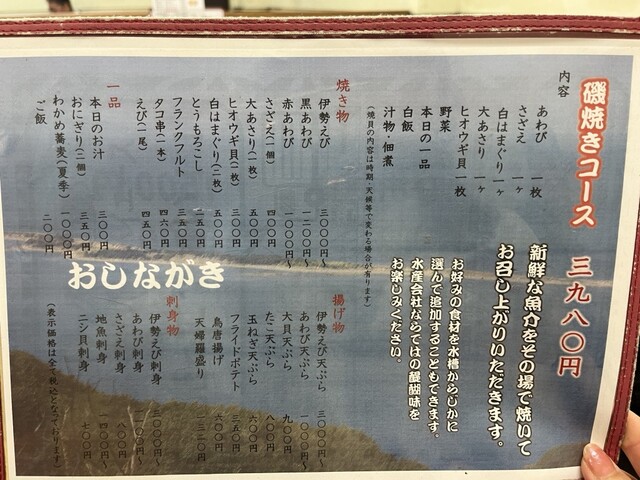 磯焼きコース 三九八〇円
内容
あわび 一枚
さざえ 一ヶ
白はまぐり 一ヶ
大あさり 一ヶ
ヒオウギ貝 一枚
野菜
本日の一品
白飯
汁物・佃煮
(焼貝の内容は時期・天候等で変わる場合が有ります)
新鮮な魚介をその場で焼いて
お召し上かりいただきます。
お好みの食材を水槽からじかに
選んで追加することもできます。
水産会社ならではの醍醐味を
お楽しみください。
焼き物
伊勢えび 三〇〇〇円〜
黒あわび 一二〇〇円〜
赤あわび 一〇〇〇円〜
さざえ(一個) 四〇〇円
大あさり(一枚) 五〇〇円
ヒオウギ貝(一枚) 三〇〇円
白はまぐり(二枚) 五〇〇円
とうもろこし 二五〇円
フランクフルト 三五〇円
タコ串(一本) 四六〇円
えび(一尾) 四五〇円
一品
本日のお汁 三〇〇円
おにぎり(二個) 三五〇円
わかめ蕎麦(夏季) 一〇〇〇円
ご飯 二〇〇円
おしながき
揚げ物
伊勢えび天ぷら 三〇〇〇円〜
あわび天ぷら 一〇〇〇円〜
大貝天ぷら 九〇〇円
たこ天ぷら 八〇〇円
玉ねぎ天ぷら 六〇〇円
フライドポテト 三五〇円
鳥唐揚げ 六〇〇円
天婦羅盛り 一三二〇円
刺身物
伊勢えび刺身 三〇〇〇円〜
あわび刺身
さざえ刺身 八〇〇円
地魚刺身 一四〇〇円
ニシ貝刺身 七〇〇円
(表示価格は全て税込となっております)